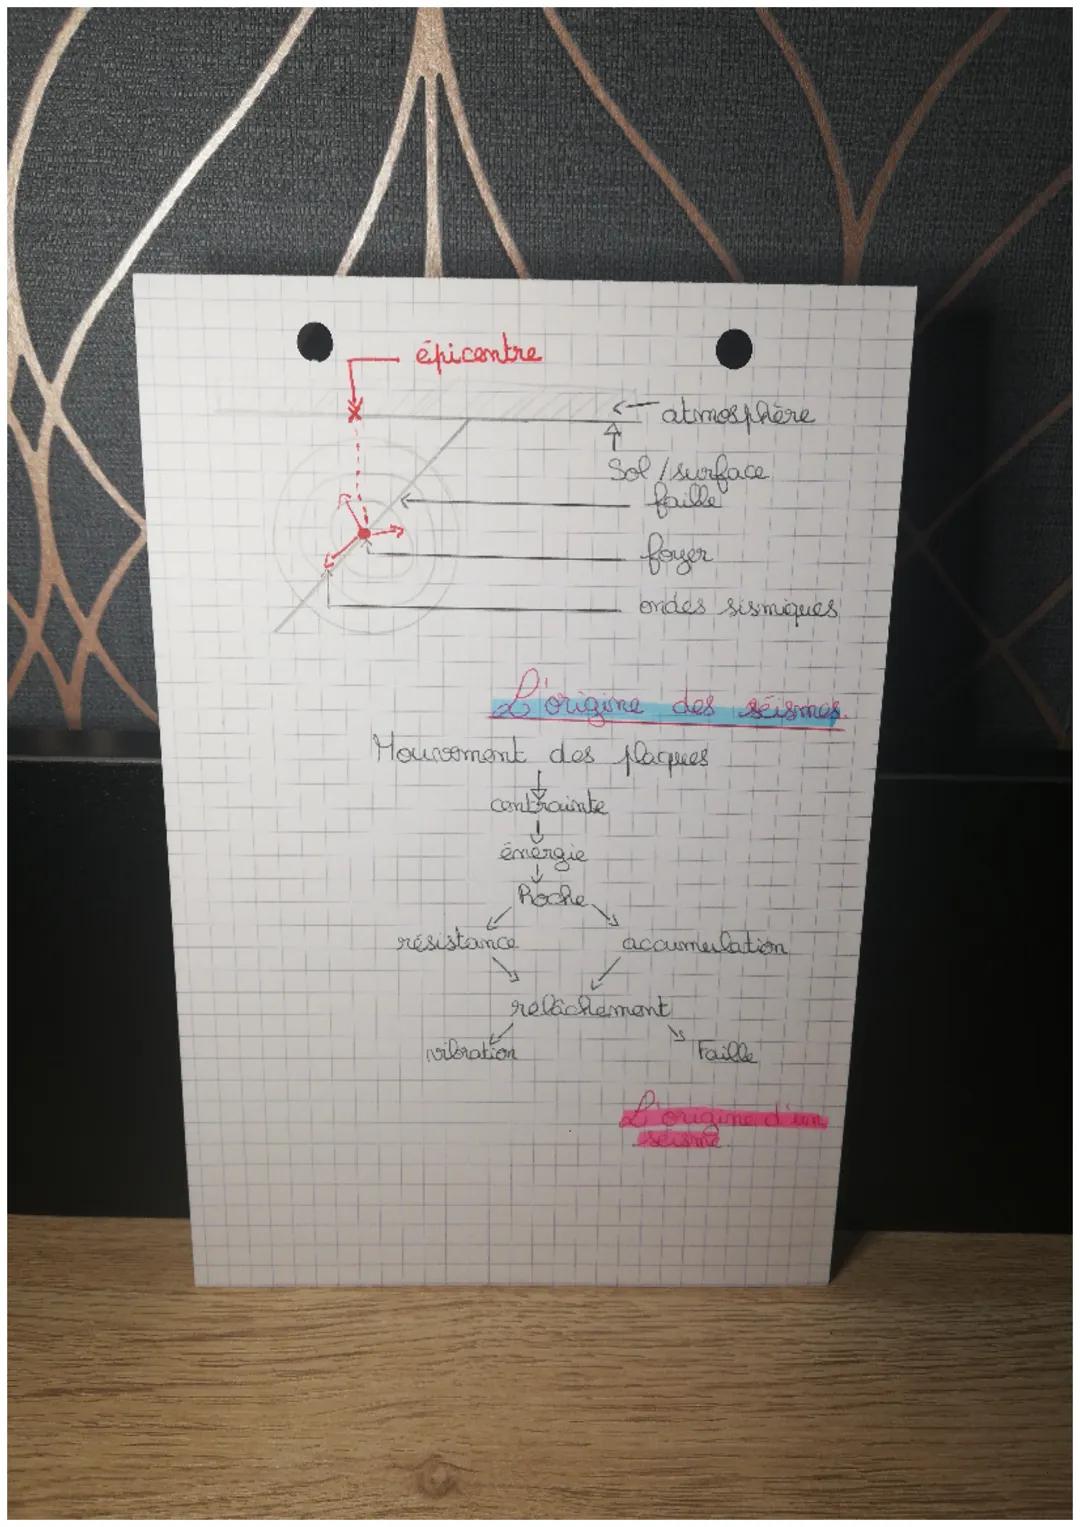 épicentre
atmosphère
Sol / surface
faille
foyer
ondes sismiques
L'origine des séismes.
Mouvement des plaques
contrainte
énergie
Roche
résistance accumulation
relâchement
vibration Faille
L'origine d'un
séisme.